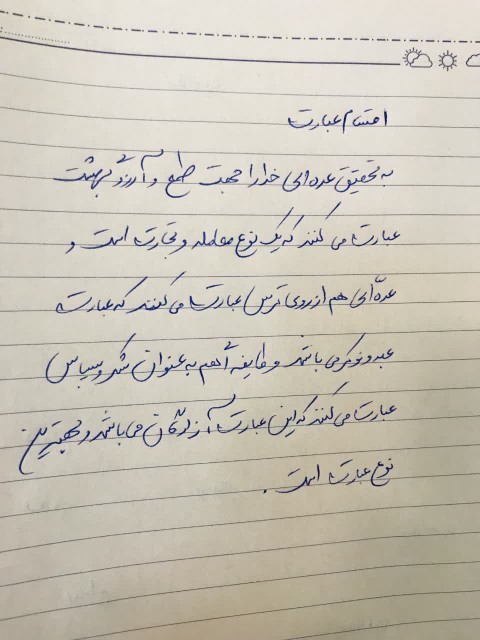 اقسام عبادت
به تحقیق عده ای خدا را جهت طمع و آرزو بهشت
عبادت می کنند که یک نوع معامله و تجارت است و
عدّه ای هم از روی ترس عبادت می کنند که عبادت
عبد و نوکر می باشد و طایفه اهم به عنوان شکر و سپاس
عبادت می کنند که این عبادت آزادگان می باشد و بهترین
نوع عبادت است .